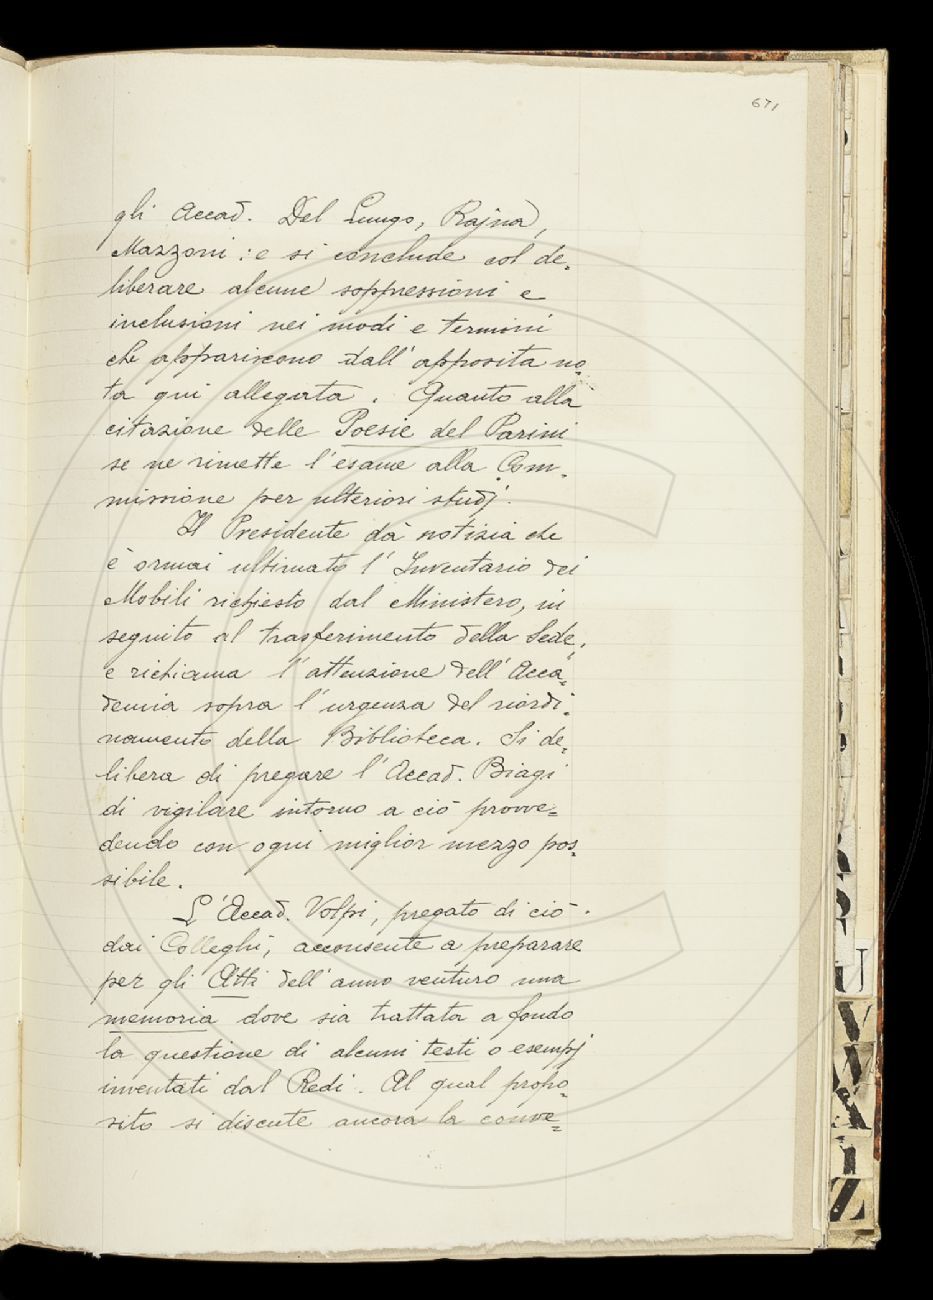 671
gli Accad. Del Lungo, Rajna,
Mazzoni: e si conclude col de=
liberare alcune soppressioni e
inclusioni nei modi e termini
che appariscono dall'apposita no=
ta qui allegata. Quanto alla
citazione delle Poesie del Parini
se ne rimette l'esame alla Com=
missione per ulteriori studj.
Il Presidente dà notizia che
è ormai ultimato l'Inventario dei
Mobili richiesto dal Ministero, in
seguito al trasferimento della Sede,
e richiama l'attenzione dell'Acca=
demia sopra l'urgenza del riordi=
namento della Biblioteca. Si de=
libera di pregare l'Accad. Biagi
di vigilare intorno a ciò provve=
dendo con ogni miglior mezzo pos=
sibile.
L'Accad. Volpi, pregato di ciò
dai Colleghi, acconsente a preparare
per gli Atti dell'anno venturo una
memoria dove sia trattata a fondo
la questione di alcuni testi o esempj
inventati dal Redi. Al qual propo=
sito si discute ancora la conve=